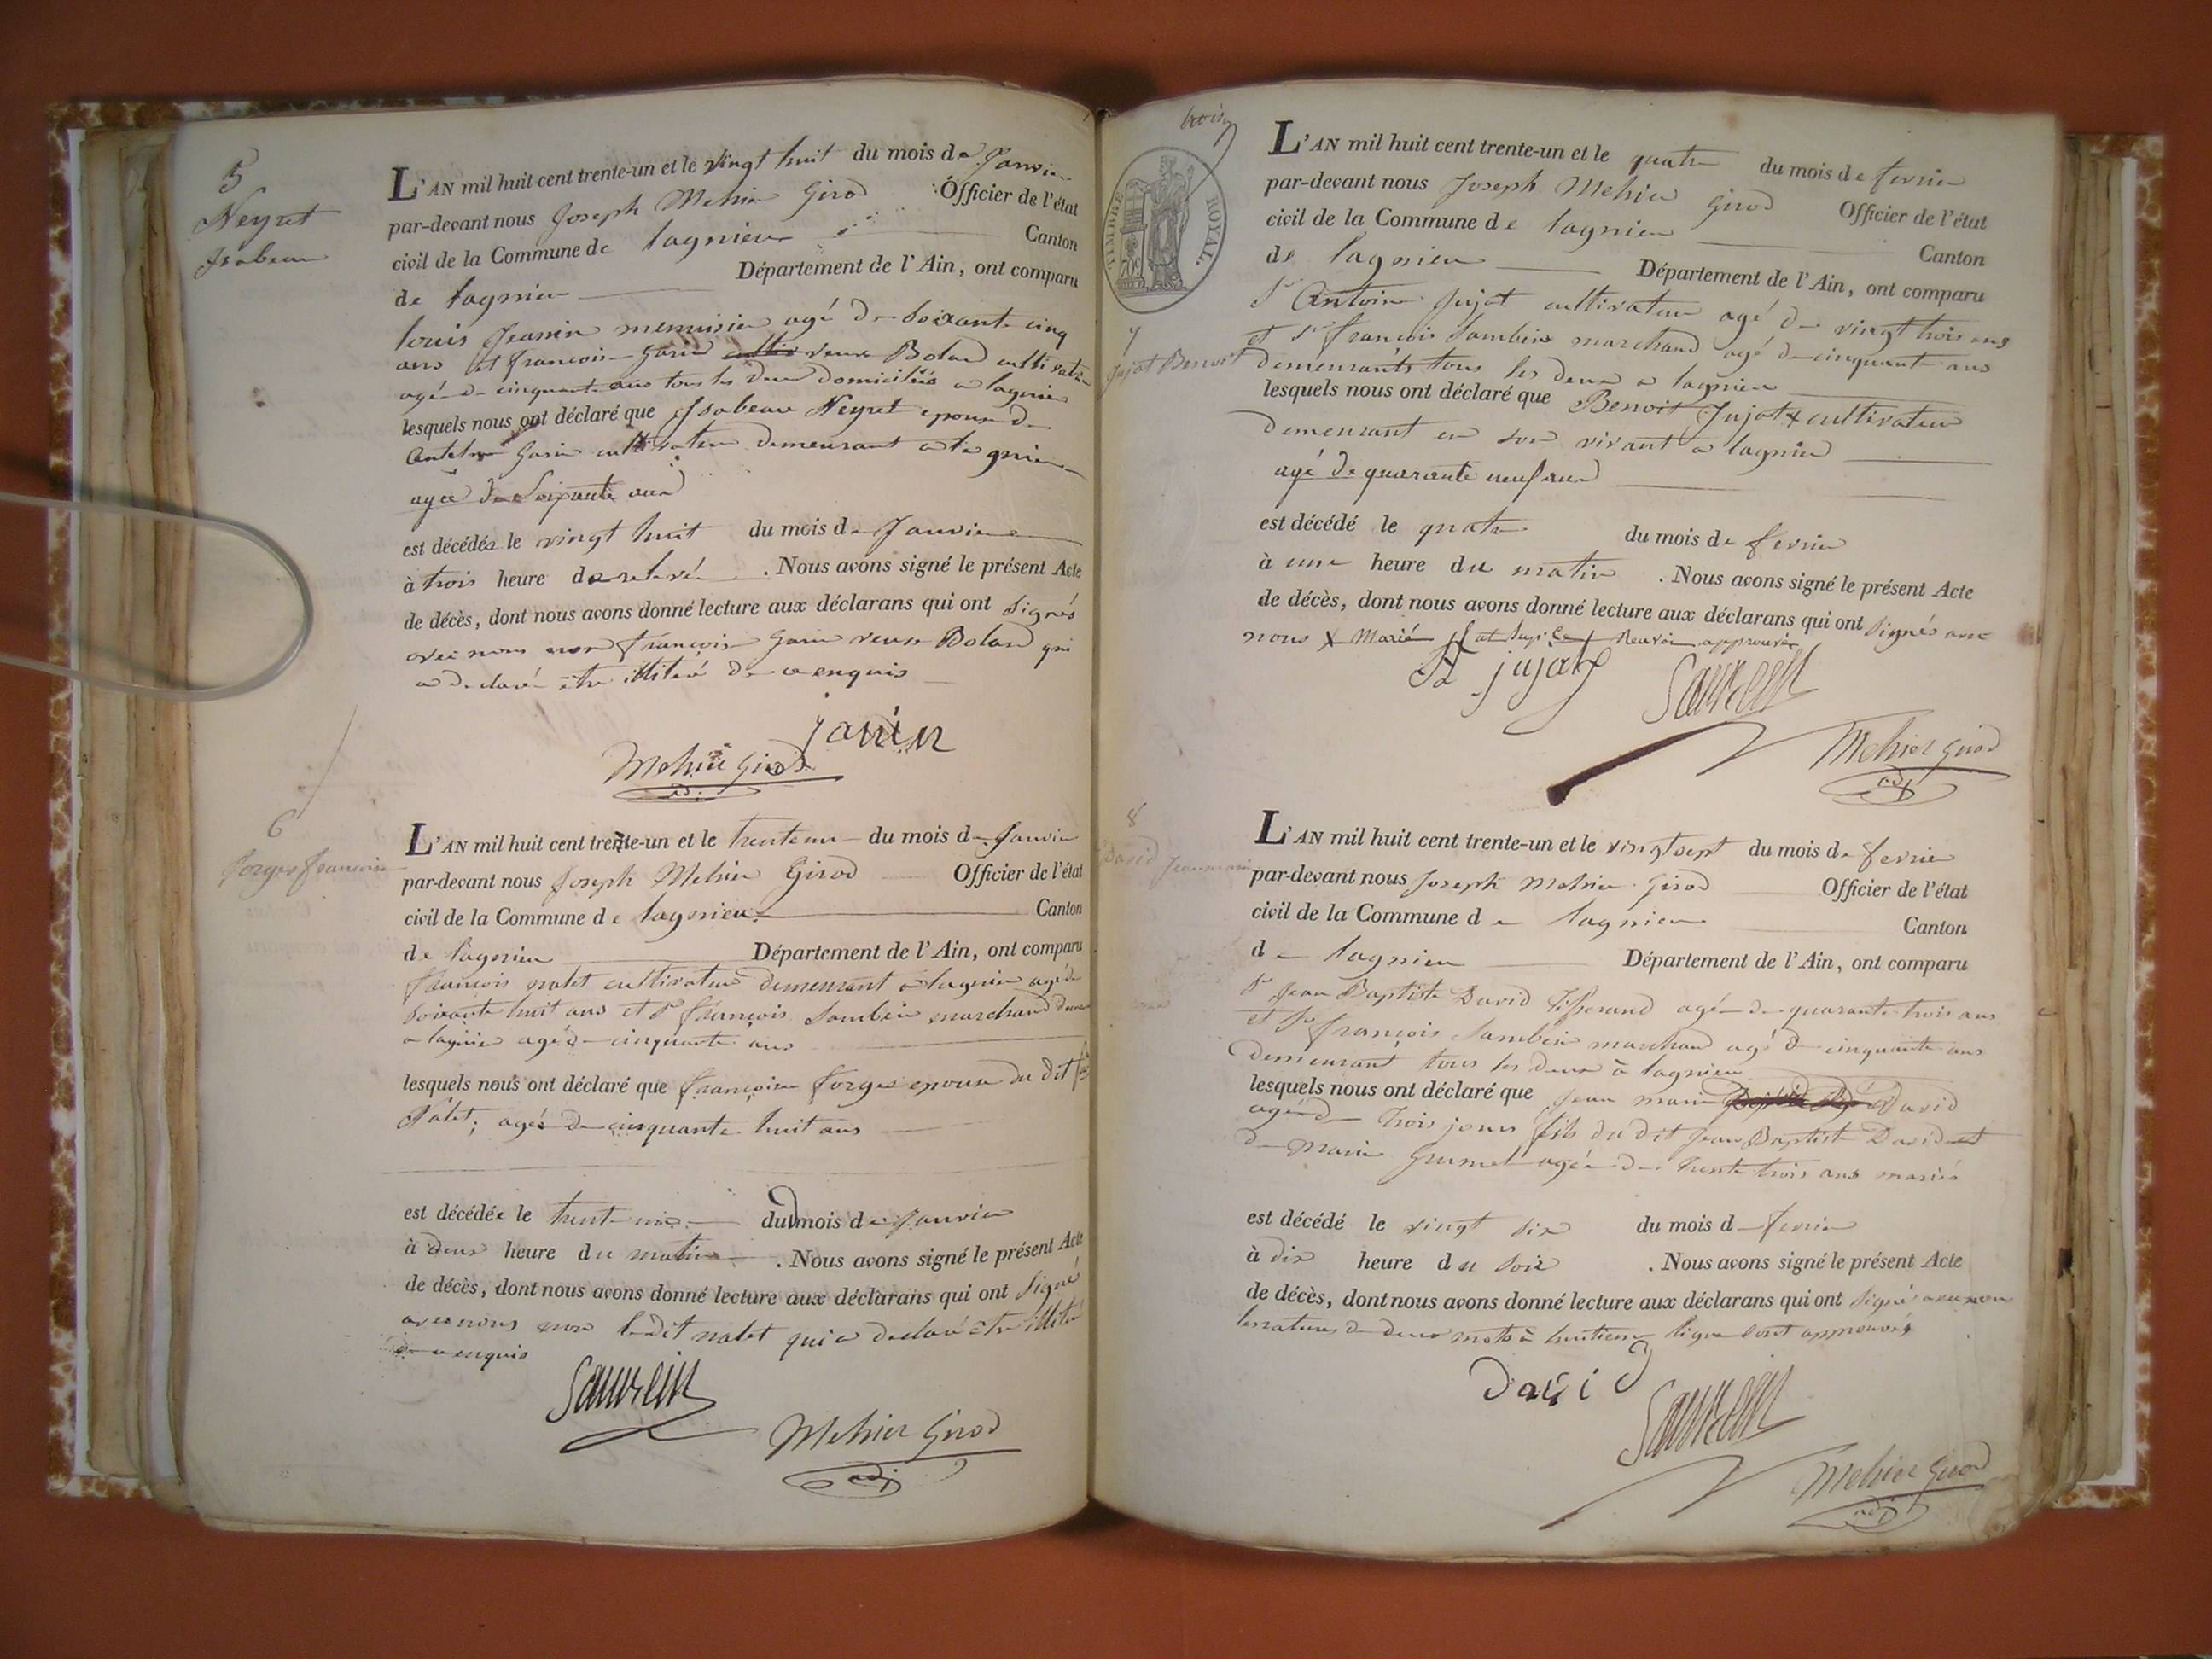 5
Neyret
Isabeau
L'AN mil huit cent trente-un et le vingt huit du mois de Janvier
par-devant nous Joseph Mehier Girod Officier de l'état
civil de la Commune de lagnieu Canton
de lagnieu Département de l'Ain, ont comparu
louis Jeanin menuisier agé de soixante cinq
ans et francoise Garin veuve Boland cultivatrice
agé de cinquante ans tous les deux domiciliés a lagnieu
lesquels nous ont déclaré que Isabeau Neyret epouse de
Antelme Garin cultivateur demeurant a lagnieu
agée de Soixante ans
est décédée le vingt huit du mois de Janvier
à trois heure de relevée. Nous avons signé le présent Acte
de décès, dont nous avons donné lecture aux déclarans qui ont signés
avec nous non françoise Garin veuve Boland qui
a déclaré être illitéré de ce enquis
janin
Mehier Girod
adj
6
forges francoise
L'AN mil huit cent trente-un et le trente un du mois de Janvier
par-devant nous Joseph Mehier Girod Officier de l'état
civil de la Commune de lagnieu Canton
de lagnieu Département de l'Ain, ont comparu
françois nalet cultivateur demeurant a lagnieu agé de
soixante huit ans et Sr françois Sambin marchand
a lagnieu agé de cinquante ans
lesquels nous ont déclaré que françoise forges epouse du dit
Nalet, agée de cinquante huit ans
est décédée le trente un du mois de Janvier
à deux heure du matin. Nous avons signé le présent Acte
de décès, dont nous avons donné lecture aux déclarans qui ont signé
avec nous non le dit nalet qui a declaré être illitéré
de ce enquis
Mehier Girod
adj
trois
TIMBRE ROYAL.
70c
7
Jujat Benoit
L'AN mil huit cent trente-un et le quatre du mois de fevrier
par-devant nous Joseph Mehier Girod Officier de l'état
civil de la Commune de lagnieu Canton
de lagnieu Département de l'Ain, ont comparu
Sr Antoine Jujat cultivateur agé de vingt trois ans
et Sr françois Sambin marchand agé de cinquante ans
demeurants tous les deux a lagnieu
lesquels nous ont déclaré que Benoit Jujat x cultivateur
demeurant en son vivant a lagnieu
agé de quarante neuf ans
est décédé le quatre du mois de fevrier
à une heure du matin. Nous avons signé le présent Acte
de décès, dont nous avons donné lecture aux déclarans qui ont signés avec
nous x Marié renvoi approuvé
jujat
Mehier Girod
adj
8
David Jean marie
L'AN mil huit cent trente-un et le vingt sept du mois de fevrier
par-devant nous Joseph Mehier Girod Officier de l'état
civil de la Commune de lagnieu Canton
de lagnieu Département de l'Ain, ont comparu
Sr Jean Baptiste David Tisserand agé de quarante trois ans
et Sr françois Sambin marchand agé de cinquante ans
demeurant tous les deux à lagnieu
lesquels nous ont déclaré que Jean marie David
agé de Trois jours fils du dit Jean Baptiste David et
de Marie Grumet agée de Trente trois ans mariés
est décédé le vingt six du mois de fevrier
à dix heure du soir. Nous avons signé le présent Acte
de décès, dont nous avons donné lecture aux déclarans qui ont signé avec nous
les ratures de deux mots à huitieme ligne sont approuvés
David
Mehier Girod
adj